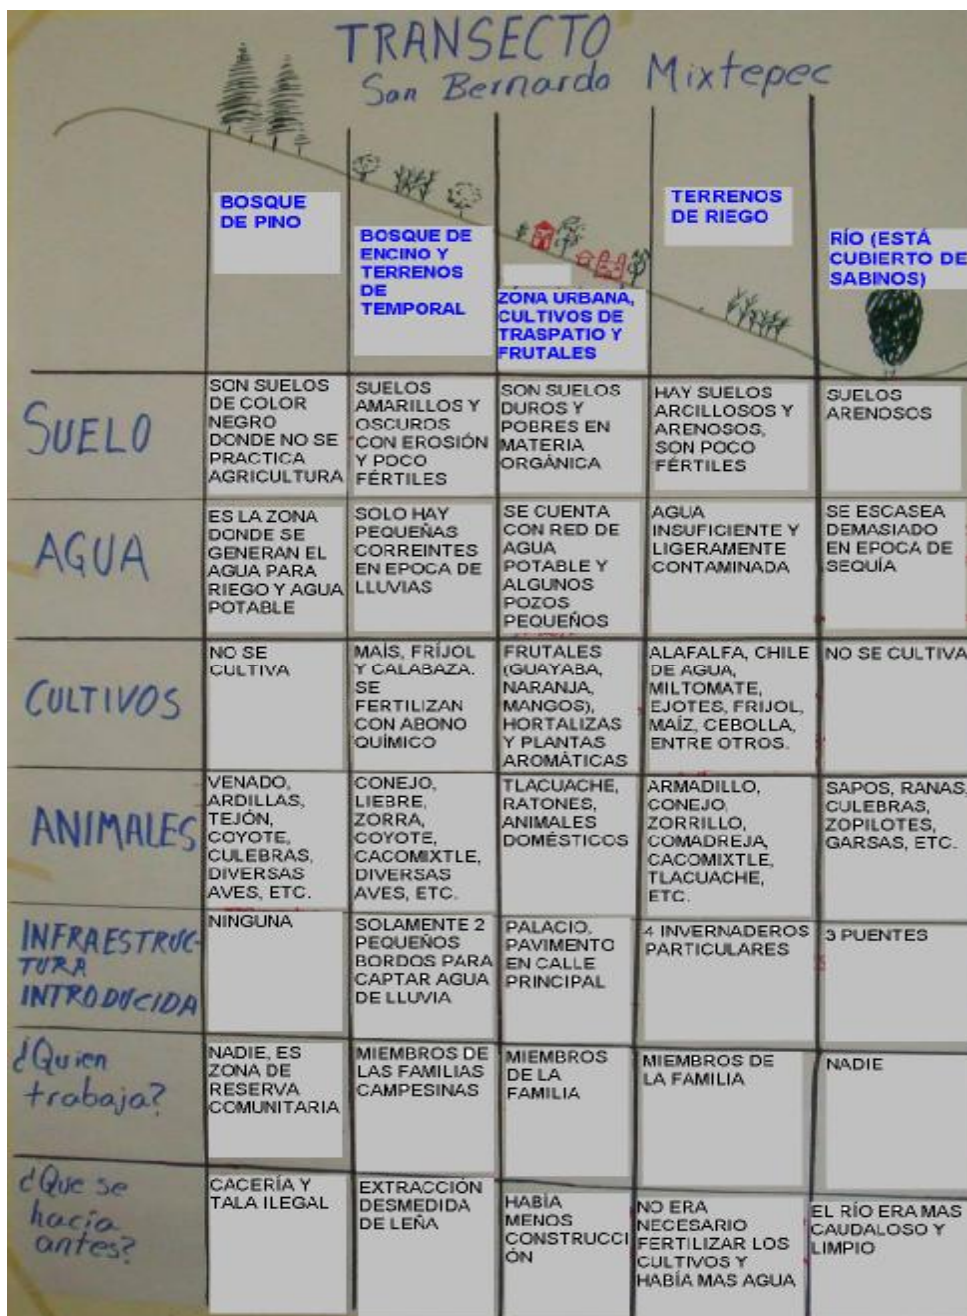 TRANSECTO
San Bernardo Mixtepec
BOSQUE
DE PINO
BOSQUE DE
ENCINO Y
TERRENOS
DE
TEMPORAL
ZONA URBANA,
CULTIVOS DE
TRASPATIO Y
FRUTALES
TERRENOS
DE RIEGO
RÍO (ESTÁ
CUBIERTO DE
SABINOS)
SUELO
SON SUELOS
DE COLOR
NEGRO
DONDE NO SE
PRACTICA
AGRICULTURA
SUELOS
AMARILLOS Y
OSCUROS
CON EROSIÓN
Y POCO
FÉRTILES
SON SUELOS
DUROS Y
POBRES EN
MATERIA
ORGÁNICA
HAY SUELOS
ARCILLOSOS Y
ARENOSOS,
SON POCO
FÉRTILES
SUELOS
ARENOSOS
AGUA
ES LA ZONA
DONDE SE
GENERAN EL
AGUA PARA
RIEGO Y AGUA
POTABLE
SOLO HAY
PEQUEÑAS
CORREINTES
EN EPOCA DE
LLUVIAS
SE CUENTA
CON RED DE
AGUA
POTABLE Y
ALGUNOS
POZOS
PEQUEÑOS
AGUA
INSUFICIENTE Y
LIGERAMENTE
CONTAMINADA
SE ESCASEA
DEMASIADO
EN EPOCA DE
SEQUÍA
CULTIVOS
NO SE
CULTIVA
MAÍS, FRÍJOL
Y CALABAZA.
SE
FERTILIZAN
CON ABONO
QUÍMICO
FRUTALES
(GUAYABA,
NARANJA,
MANGOS),
HORTALIZAS
Y PLANTAS
AROMÁTICAS
ALAFALFA, CHILE
DE AGUA,
MILTOMATE,
EJOTES, FRIJOL,
MAÍZ, CEBOLLA,
ENTRE OTROS.
NO SE CULTIVA
ANIMALES
VENADO,
ARDILLAS,
TEJÓN,
COYOTE,
CULEBRAS,
DIVERSAS
AVES, ETC.
CONEJO,
LIEBRE,
ZORRA,
COYOTE,
CACOMIXTLE,
DIVERSAS
AVES, ETC.
TLACUACHE,
RATONES,
ANIMALES
DOMÉSTICOS
ARMADILLO,
CONEJO,
ZORRILLO,
COMADREJA,
CACOMIXTLE,
TLACUACHE,
ETC.
SAPOS, RANAS,
CULEBRAS,
ZOPILOTES,
GARSAS, ETC.
INFRAESTRUC-
TURA
INTRODUCIDA
NINGUNA
SOLAMENTE 2
PEQUEÑOS
BORDOS PARA
CAPTAR AGUA
DE LLUVIA
PALACIO,
PAVIMENTO
EN CALLE
PRINCIPAL
4 INVERNADEROS
PARTICULARES
3 PUENTES
¿Quien
trabaja?
NADIE, ES
ZONA DE
RESERVA
COMUNITARIA
MIEMBROS DE
LAS FAMILIAS
CAMPESINAS
MIEMBROS
DE LA
FAMILIA
MIEMBROS DE
LA FAMILIA
NADIE
¿Que se
hacía
antes?
CACERÍA Y
TALA ILEGAL
EXTRACCIÓN
DESMEDIDA
DE LEÑA
HABÍA
MENOS
CONSTRUCCI
ÓN
NO ERA
NECESARIO
FERTILIZAR LOS
CULTIVOS Y
HABÍA MAS AGUA
EL RÍO ERA MAS
CAUDALOSO Y
LIMPIO